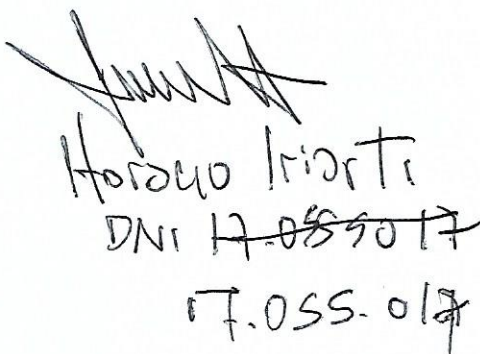 Horacio Iriarte
DNI 17.0555017
17.055.017